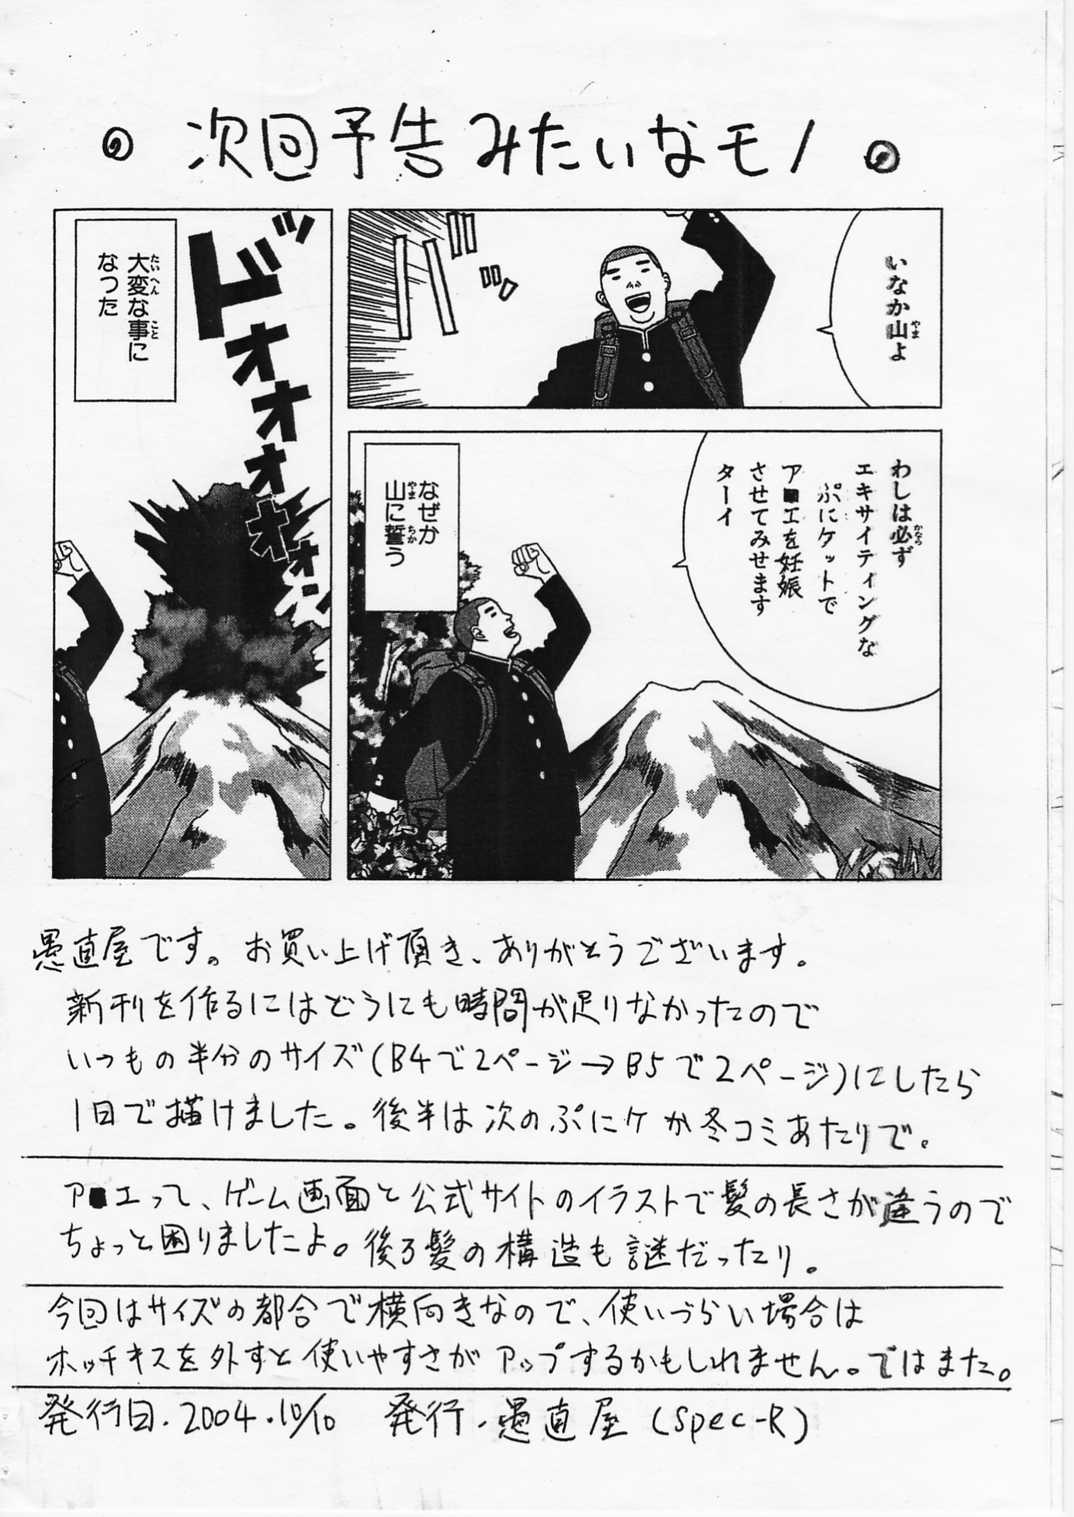 次回予告みたいなモノ
いなか山よ
ババッ
わしは必ず
エキサイティングな
ぷにケットで
ア■エを妊娠
させてみせます
ターイ
なぜか
山に誓う
ドオオオォオオォン
大変な事に
なった
愚直屋です。お買い上げ頂き、ありがとうございます。
新刊を作るにはどうにも時間が足りなかったので
いつもの半分のサイズ(B4で2ページ→B5で2ページ)にしたら
1日で描けました。後半は次のぷにケか冬コミあたりで。
ア■エって、ゲーム画面と公式サイトのイラストで髪の長さが違うので
ちょっと困りましたよ。後ろ髪の構造も謎だったり。
今回はサイズの都合で横向きなので、使いづらい場合は
ホッチキスを外すと使いやすさがアップするかもしれません。ではまた。
発行日・2004・10/10 発行・愚直屋(Spec-R)